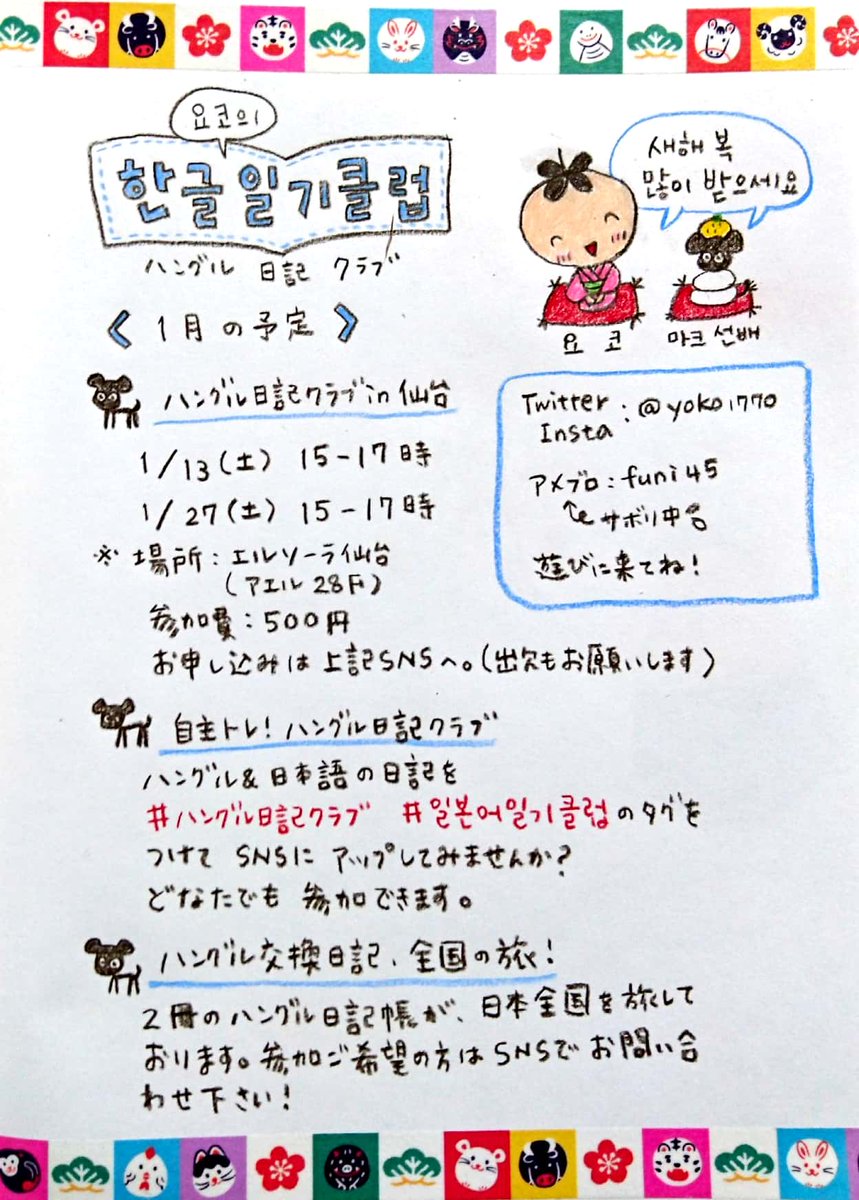 요코의
한글일기클럽
ハングル 日記 クラブ
새해 복
많이 받으세요
요코 마크 선배
〈1月の予定〉
ハングル日記クラブin仙台
1/13(土) 15-17時
1/27(土) 15-17時
※場所:エルソーラ仙台
(アエル28F)
参加費:500円
お申し込みは上記SNSへ。(出欠もお願いします)
Twitter
Insta :@yoko1770
アメブロ:funi45
サボり中
遊びに来てね!
自主トレ!ハングル日記クラブ
ハングル&日本語の日記を
#ハングル日記クラブ #일본어일기클럽のタグを
つけてSNSにアップしてみませんか?
どなたでも参加できます。
ハングル交換日記、全国の旅!
2冊のハングル日記帳が、日本全国を旅して
おります。参加ご希望の方はSNSでお問い合
わせ下さい!